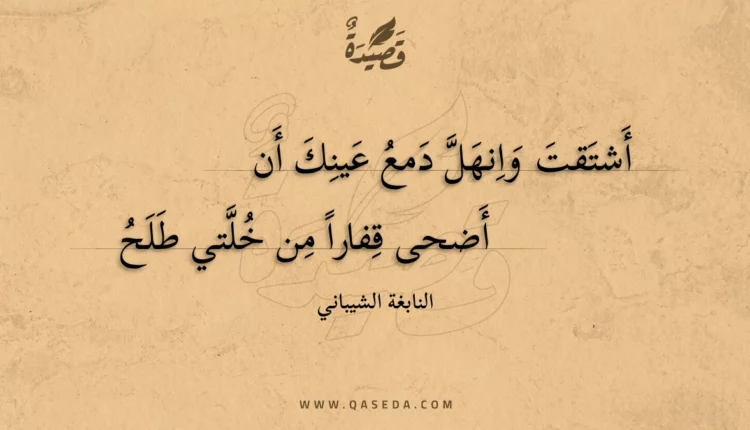 قَصِيْدَةٌ
أَشتَقتَ وَاِنهَلَّ دَمعُ عَينِكَ أَن
أَضحى قِفاراً مِن خُلَّتي طَلَحُ
النابغة الشيباني
WWW.QASEDA.COM